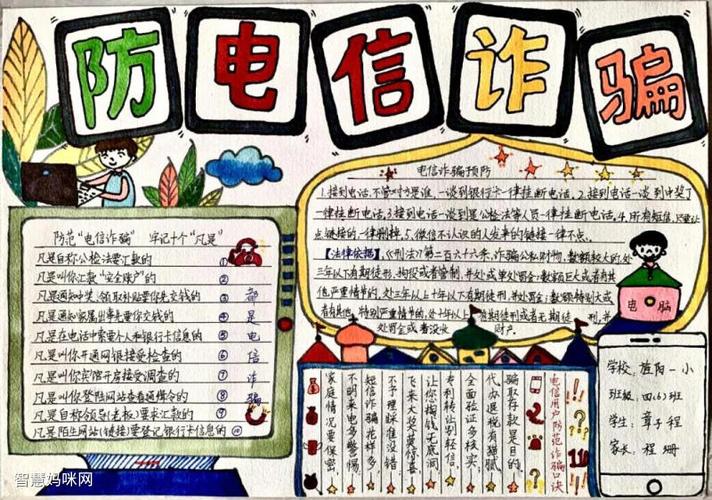 防电信诈骗
防范“电信诈骗” 牢记十个“凡是”
凡是自称公检法要汇款的 ①
凡是叫你汇款“安全账户”的 ②
凡是通知中奖、领取补贴要你先交钱的 ③
凡是通知家属出事先要你交钱的 ④
凡是在电话中索要个人和银行卡信息的 ⑤
凡是叫你开通网银接受检查的 ⑥
凡是叫你宾馆开房接受调查的 ⑦
凡是叫你登陆网站查看通缉令的 ⑧
凡是自称领导(老板)要求汇款的 ⑨
凡是陌生网站(链接)要登记银行卡信息的 ⑩
都是电信诈骗
电信诈骗预防
1.接到电话,不管对方是谁,一谈到银行卡一律挂断电话。2.接到电话一谈到中奖了
一律挂断电话。3.接到电话一谈到是公检法等人员一律挂断电话。4.所有短信,只要让
点链接的一律删掉。5.微信不认识的人发来的链接一律不点。
【法律依据】《刑法》第二百六十六条,诈骗公私财物,数额较大的,处
三年以下有期徒刑、拘役或者管制,并处或单处罚金;数额巨大或者有其
他严重情节的,处三年以上十年以下有期徒刑,并处罚金;数额特别巨大或
者有其他特别严重情节的,处十年以上有期徒刑或者无期徒刑,并
处罚金或者没收财产。
电脑
电信用户防范诈骗口诀
骗取存款是目的。
代办退税有猫腻,
全面验证多核实,
专利转出别轻信。
让你掏钱无底洞,
飞来大奖莫惊喜,
不予理睬准没错。
短信诈骗花样多,
不明来电多警惕,
家庭情况要保密,
学校:旌阳一小
班级:四(6)班
学生:章子程
家长:程姗
智慧妈咪网